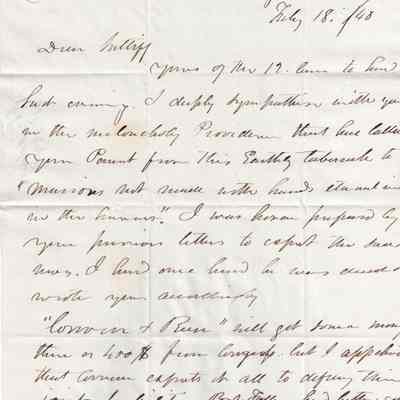 July 18. /48
Dear
Yours of the 12. came to hand
last evening. I deeply sympathise with you
in the melancholy Providence that has called
your Parent from this Earthly tabernacle to
"Mansions not made with hands eternal in
in the heavens". I was however prepared by
your previous letters to expect the sad
news. I had once heard he was dead &
wrote you accordingly
"Corwin &" will get some money
there or 400$ from Congress. but I
that Corwin expects it all to